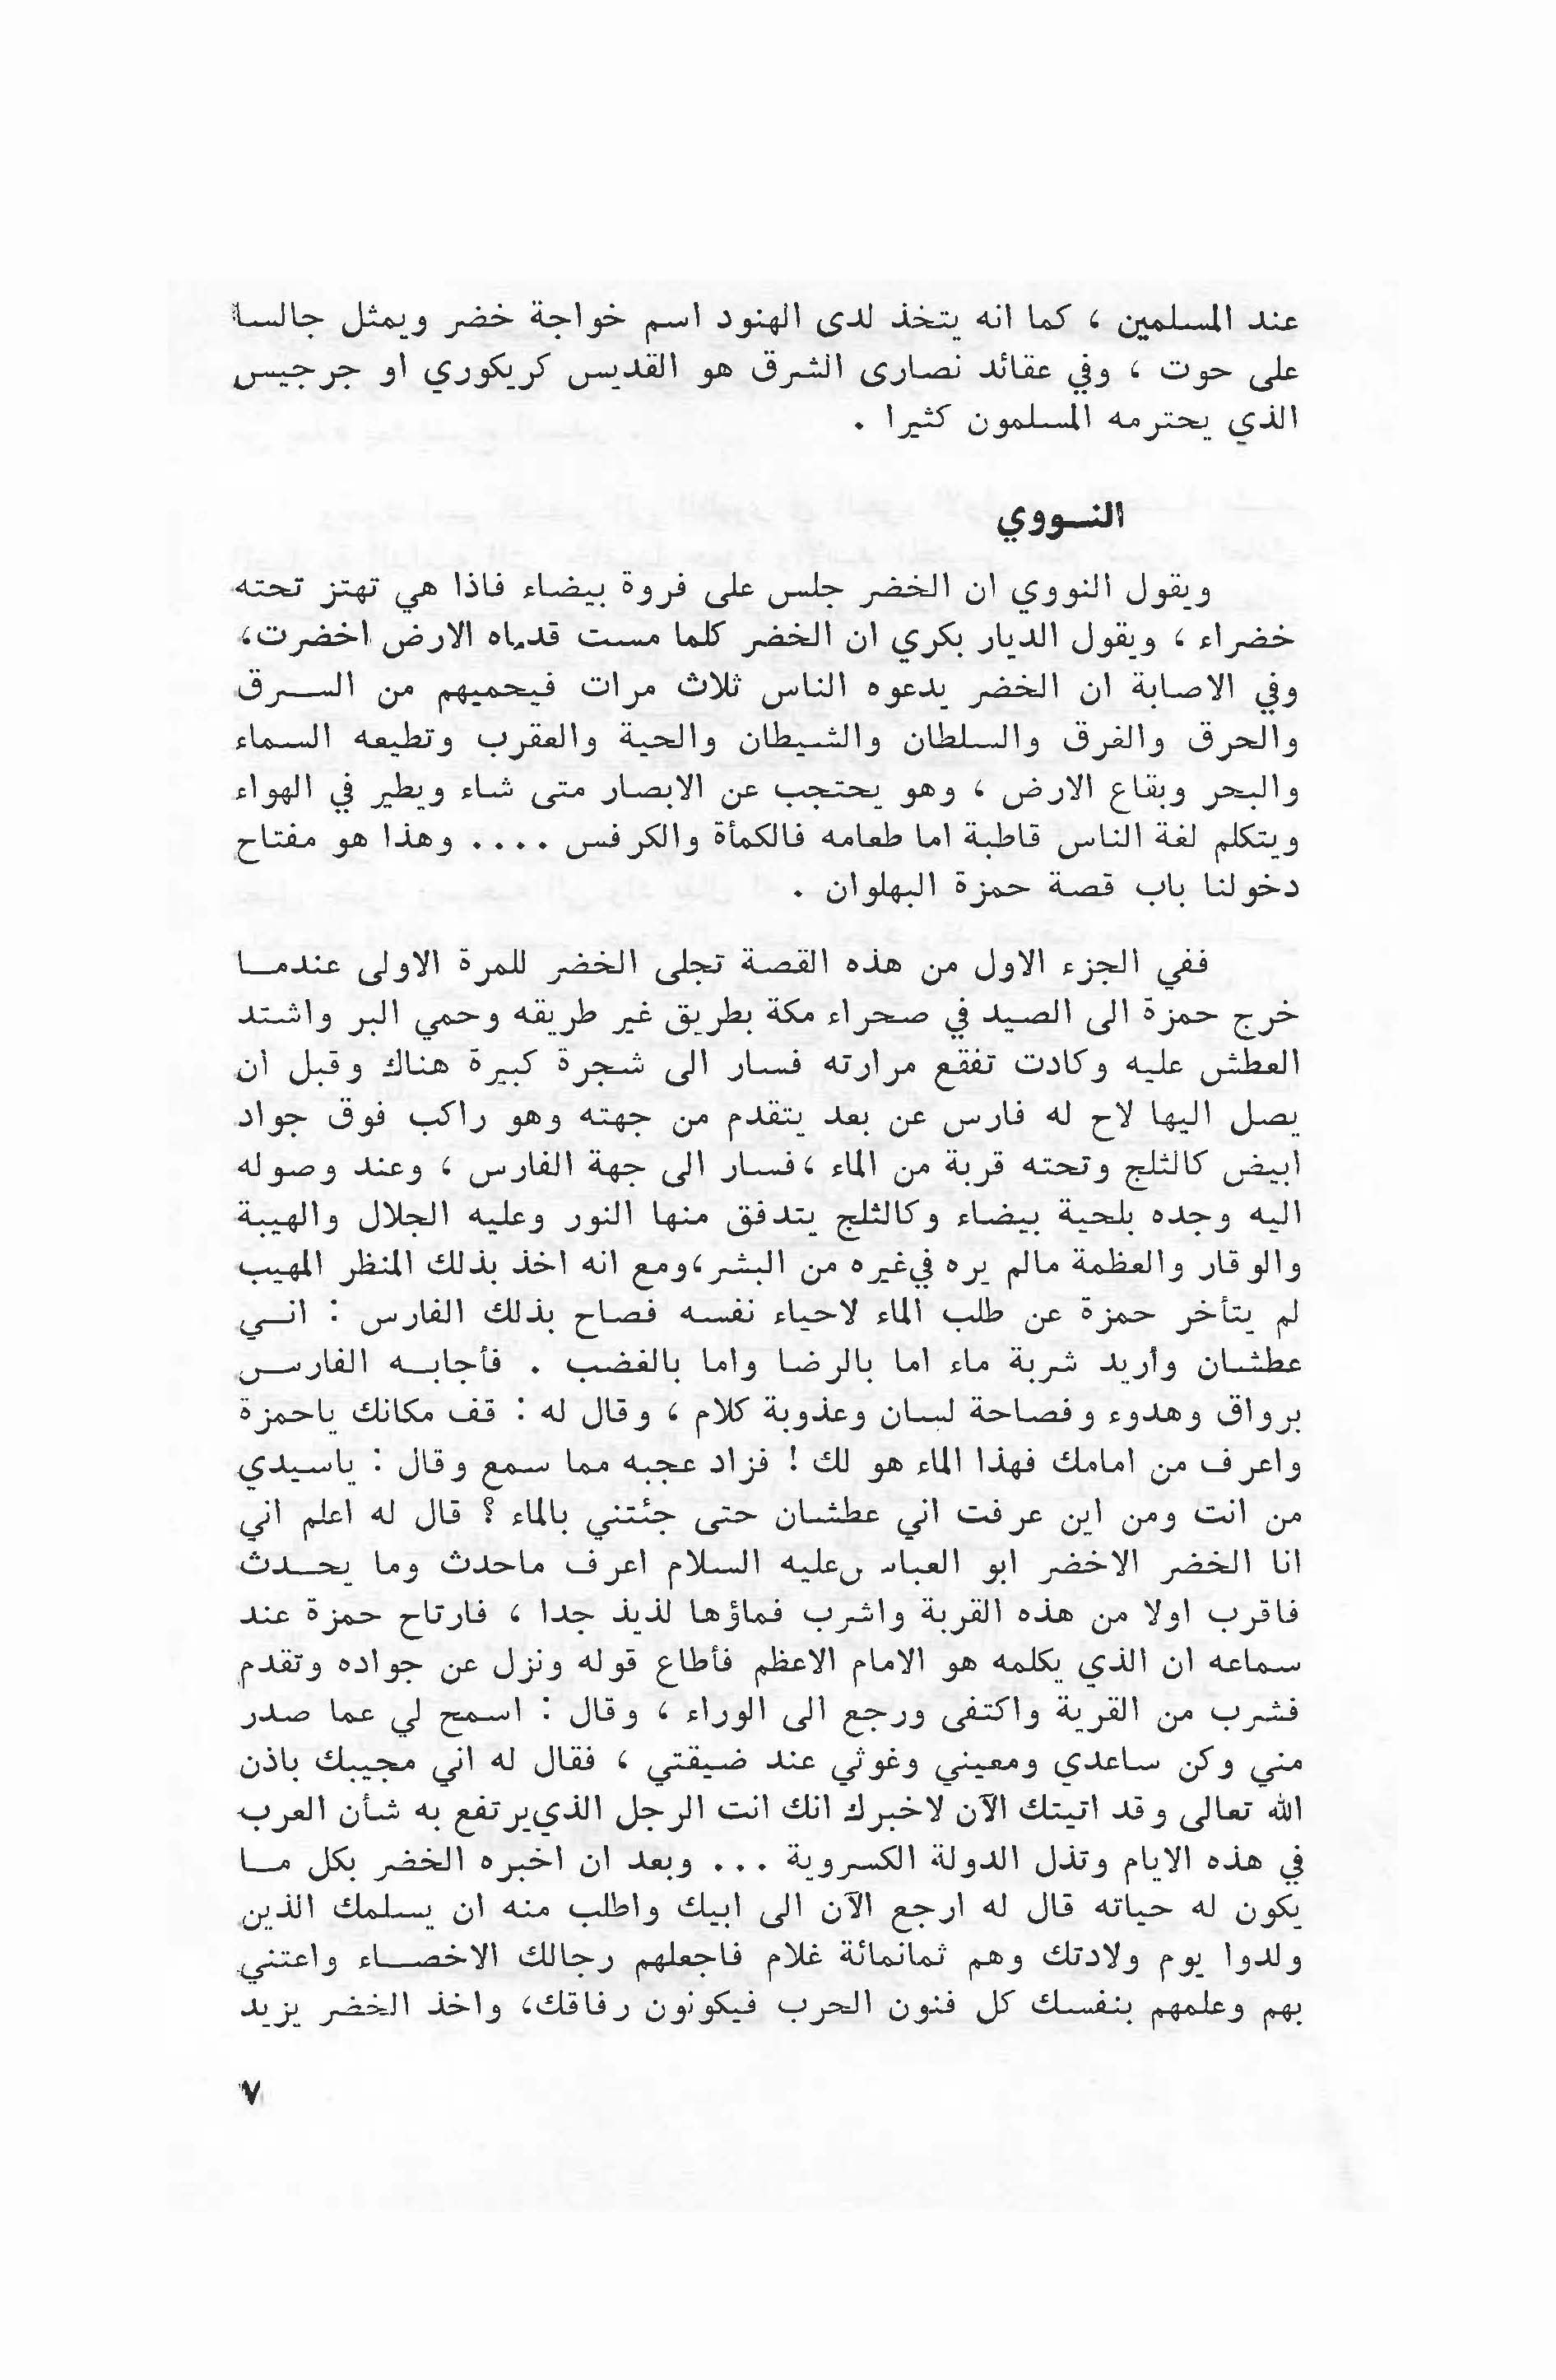 عند المسلمين ، كما انه يتخذ لدى الهنود اسم خواجة خضر ويمثل جالسا
على حوت ، وفي عقائد نصارى الشرق هو القديس كريكوري او جرجيس
الذي يحترمه المسلمون كثيرا .
النــووي
ويقول النووي ان الخضر جلس على فروة بيضاء فاذا هي تهتز تحته
خضراء ، ويقول الديار بكري ان الخضر كلما مست قدماه الارض اخضرت،
وفي الاصابة ان الخضر يدعوه الناس ثلاث مرات فيحميهم من الســرق
والحرق والغرق والسلطان والشيطان والحية والعقرب وتطيعه السماء
والبحر وبقاع الارض ، وهو يحتجب عن الابصار متى شاء ويطير في الهواء
ويتكلم لغة الناس قاطبة اما طعامه فالكمأة والكرفس .... وهذا هو مفتاح
دخولنا باب قصة حمزة البهلوان .
ففي الجزء الاول من هذه القصة تجلى الخضر للمرة الاولى عندمــا
خرج حمزة الى الصيد في صحراء مكة بطريق غير طريقه وحمي البر واشتد
العطش عليه وكادت تفقع مرارته فسار الى شجرة كبيرة هناك وقبل ان
يصل اليها لاح له فارس عن بعد يتقدم من جهته وهو راكب فوق جواد
ابيض كالثلج وتحته قربة من الماء ،فسار الى جهة الفارس ، وعند وصوله
اليه وجده بلحية بيضاء وكالثلج يتدفق منها النور وعليه الجلال والهيبة
والوقار والعظمة مالم يره في غيره من البشر،ومع انه اخذ بذلك المنظر المهيب
لم يتأخر حمزة عن طلب الماء لاحياء نفسه فصاح بذلك الفارس : انــي
عطشان وأريد شربة ماء اما بالرضا واما بالغضب . فأجابــه الفارس
برواق وهدوء وفصاحة لسان وعذوبة كلام ، وقال له : قف مكانك ياحمزة
واعرف من امامك فهذا الماء هو لك ! فزاد عجبه مما سمع وقال : ياسيدي
من انت ومن اين عرفت اني عطشان حتى جئتني بالماء ؟ قال له اعلم اني
انا الخضر الاخضر ابو العباس عليه السلام اعرف ماحدث وما يحــدث
فاقرب اولا من هذه القربة واشرب فماؤها لذيذ جدا ، فارتاح حمزة عند
سماعه ان الذي يكلمه هو الامام الاعظم فأطاع قوله ونزل عن جواده وتقدم
فشرب من القربة واكتفى ورجع الى الوراء ، وقال : اسمح لي عما صدر
مني وكن ساعدي ومعيني وغوثي عند ضيقتي ، فقال له اني مجيبك باذن
الله تعالى وقد اتيتك الآن لاخبرك انك انت الرجل الذي يرتفع به شأن العرب
في هذه الايام وتذل الدولة الكسروية ... وبعد ان اخبره الخضر بكل مــا
يكون له حياته قال له ارجع الآن الى ابيك واطلب منه ان يسلمك الذين
ولدوا يوم ولادتك وهم ثمانمائة غلام فاجعلهم رجالك الاخصــاء واعتني
بهم وعلمهم بنفسك كل فنون الحرب فيكونون رفاقك، واخذ الخضر يزيد
٧